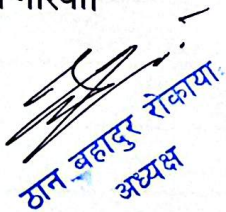 ठान बहादुर रोकाया
अध्यक्ष